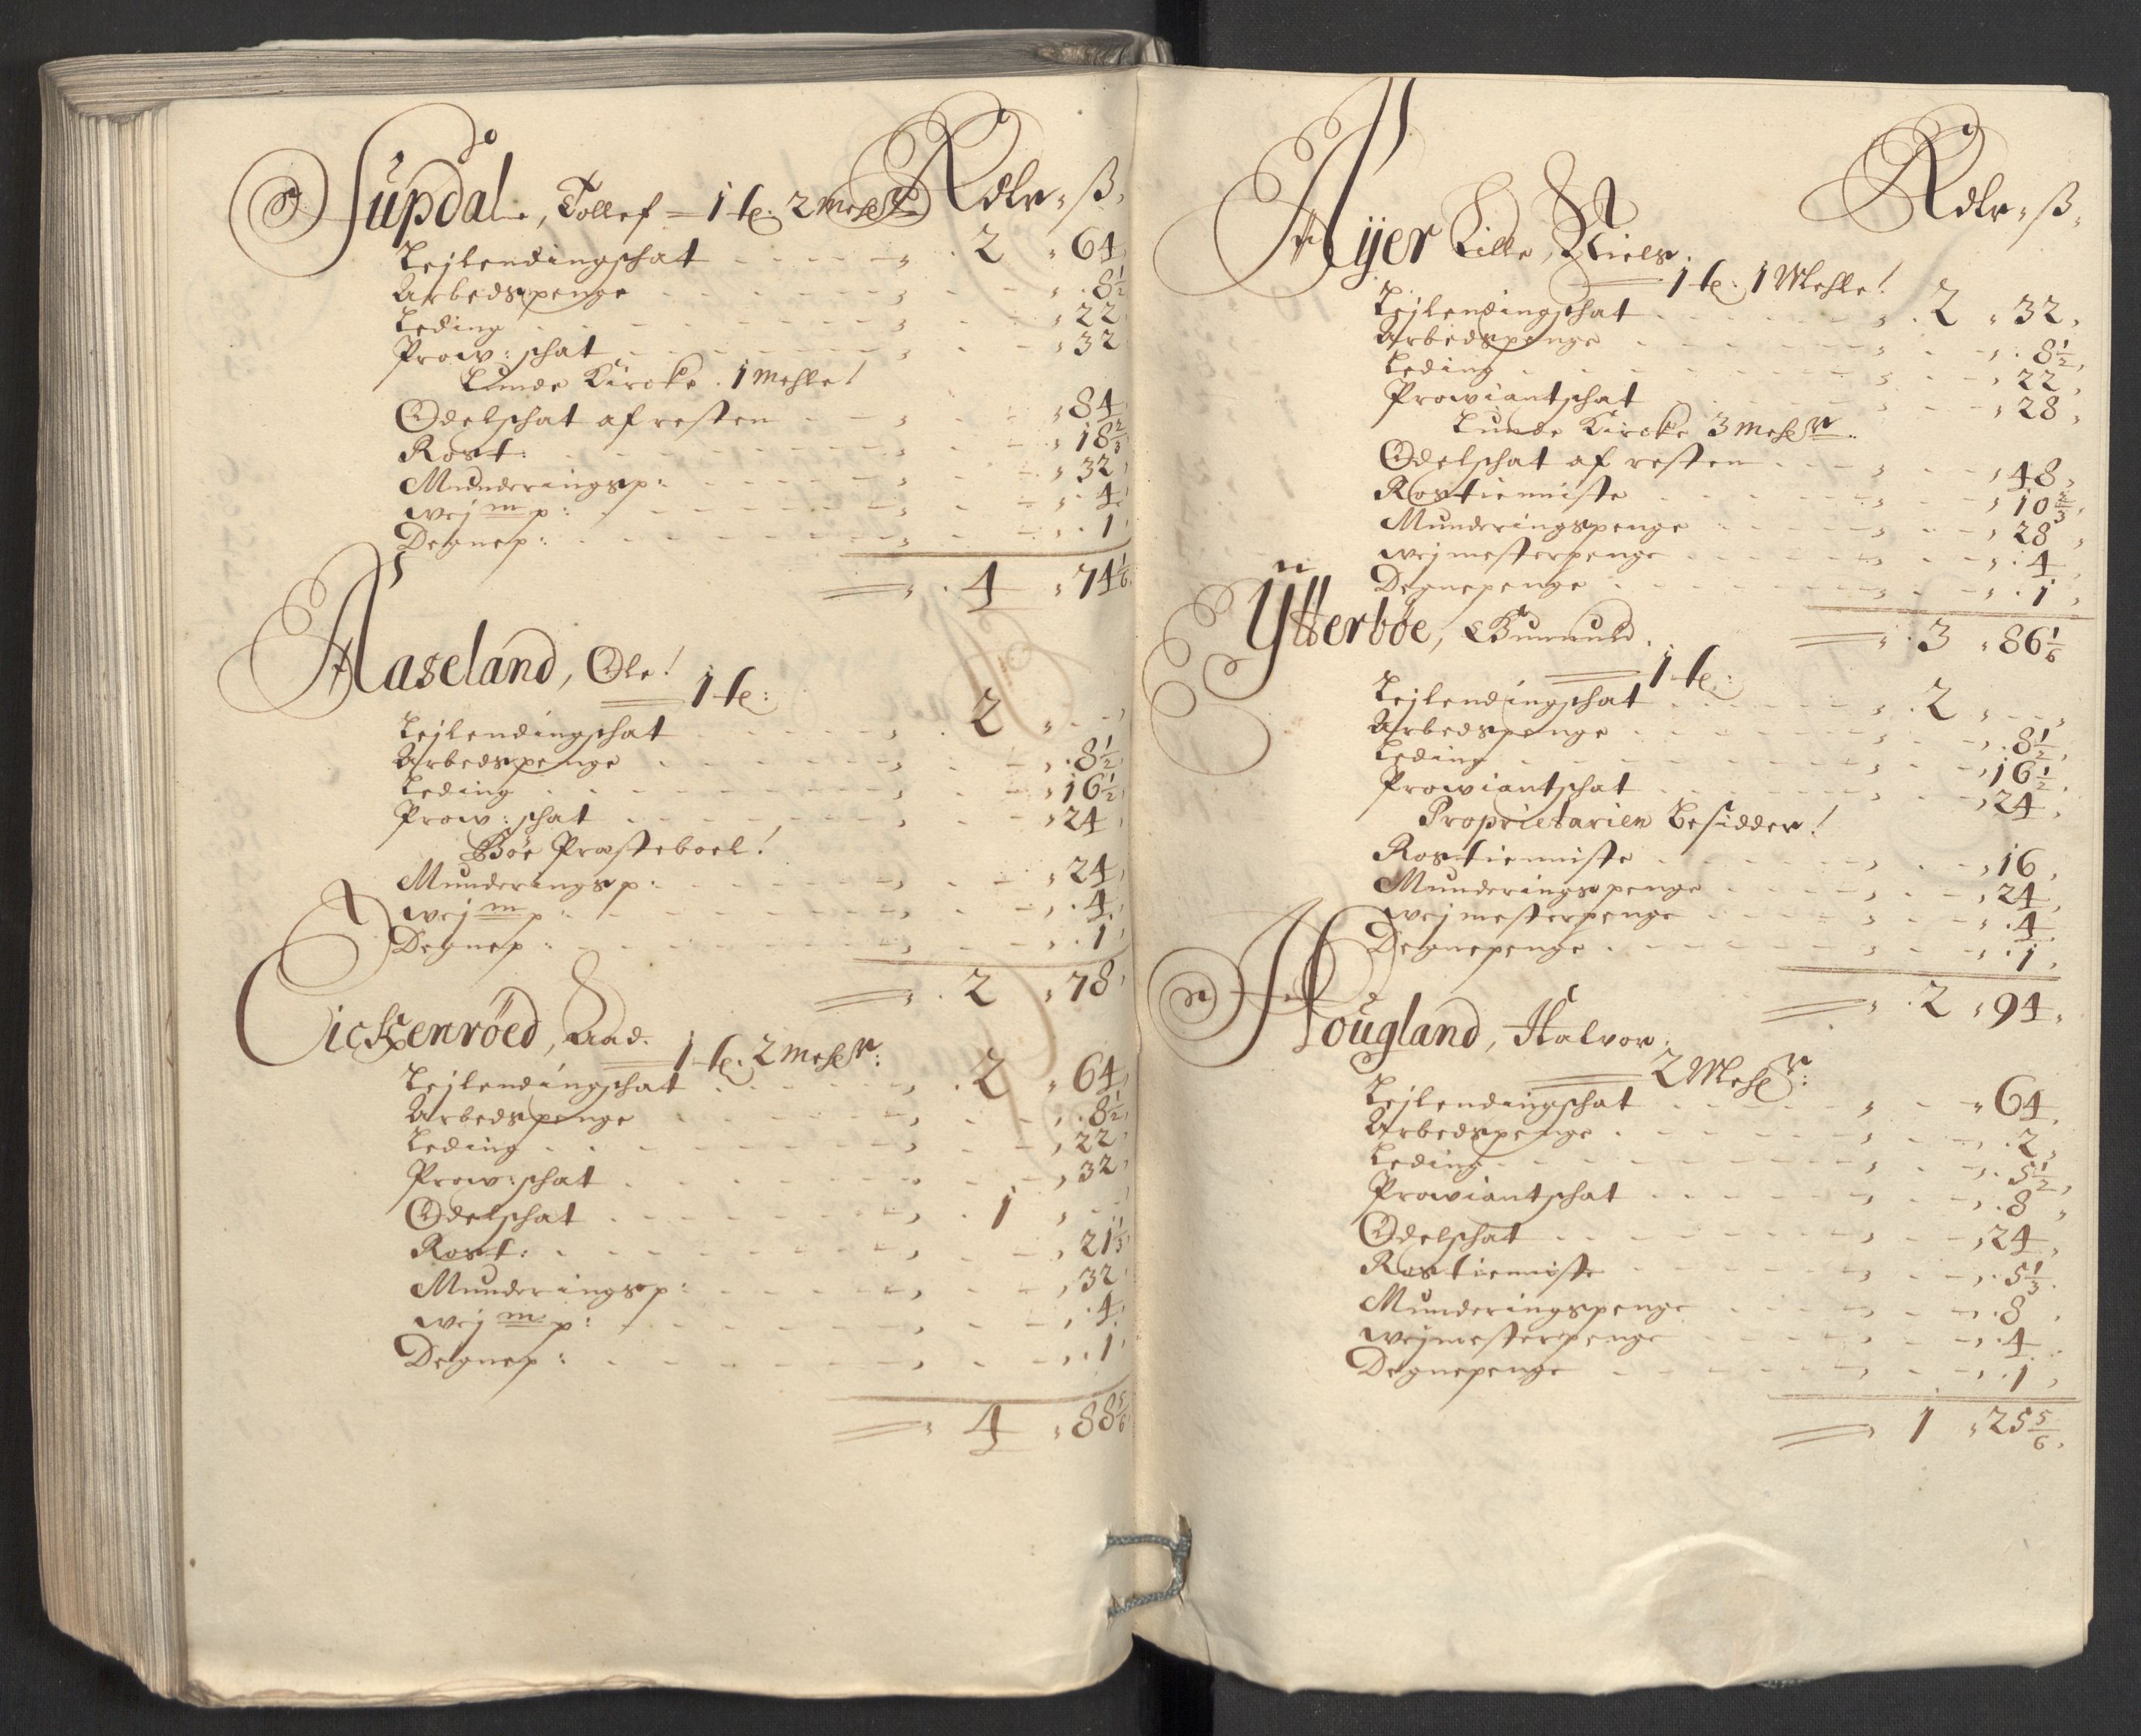 Rdlr - ß
Supdal, Tollef = 1 h: 2 mehlr
Lejlendingschat - - - 2 " 64
Arbedspenge - - - 8 1/2
Leding - - - 22
Prow: schat - - - 32
Lunde Kircke . 1 Mehle!
Odelschat af resten - - - 84
Rost: - - - 18 2/3
Munderingsp: - - - 32
wej m p: - - - 4
Degnep: - - - 1
4 " 74 1/6
Aaseland, Ole!
1 h:
Lejlendingschat - - - 2 " - -
Arbedspenge - - - 8 1/2
Leding - - - 16 1/2
Prow: schat - - - 24
Böe Præsteboel!
Munderingsp: - - - 24
wej m p: - - - 4
Degnep: - - - 1
2 " 78
Eickenröed, Aad.
1 h: 2 mehlr:
Lejlendingschat - - - 2 " 64
Arbedspenge - - - 8 1/2
Leding - - - 22
Prow: schat - - - 32
Odelschat - - - 1 " - -
Rost: - - - 21 1/3
Munderingsp: - - - 32
wej m p: - - - 4
Degnep: - - - 1
4 " 88 5/6
Rdlr - ß
Aÿer Lille, Niels.
1 h: 1 Mehle!
Lejlendingschat - - - 2 " 32
Arbedspenge - - - 8 1/2
Leding - - - 22
Prowiantschat - - - 28
Lunde Kircke 3 mehlr
Odelschat af resten - - - 48
Rostienniste - - - 10 2/3
Munderingspenge - - - 28
wejmesterpenge - - - 4
Degnepenge - - - 1
3 " 86 1/6
Ÿtterböe, Gunnuld.
1 h:
Lejlendingschat - - - 2 " - -
Arbedspenge - - - 8 1/2
Leding - - - 16 1/2
Prowiantschat - - - 24
Proprietarien Besidder!
Rostienniste - - - 16
Munderingspenge - - - 24
wejmesterpenge - - - 4
Degnepenge - - - 1
2 " 94
Hougland, Halvor.
2 Mehlr:
Lejlendingschat - - - 64
Arbedspenge - - - 2
Leding - - - 5 1/2
Prowiantschat - - - 8
Odelschat - - - 24
Rostienniste - - - 5 1/3
Munderingspenge - - - 8
wejmesterpenge - - - 4
Degnepenge - - - 1
1 " 25 5/6